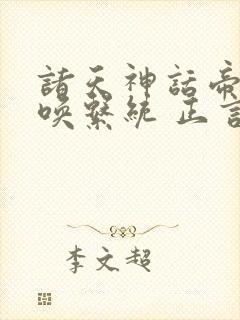 諸天神話帝
喚繫統 正言
李文超